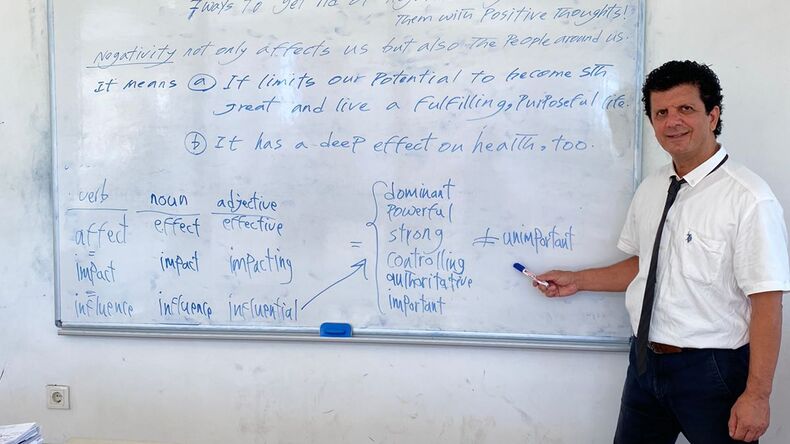 7 ways to get rid of
Them with Positive Thoughts!
Negativity not only affects us but also The People around us.
It means ⓐ It limits our Potential to become sth
great and live a Fulfilling, Purposeful life.
ⓑ It has a deep effect on health, too.
verb noun adjective
affect effect effective
=
impact impact impacting
=
influence influence influential
= { dominant
Powerful
strong ≠ unimportant
controlling
authoritative
important